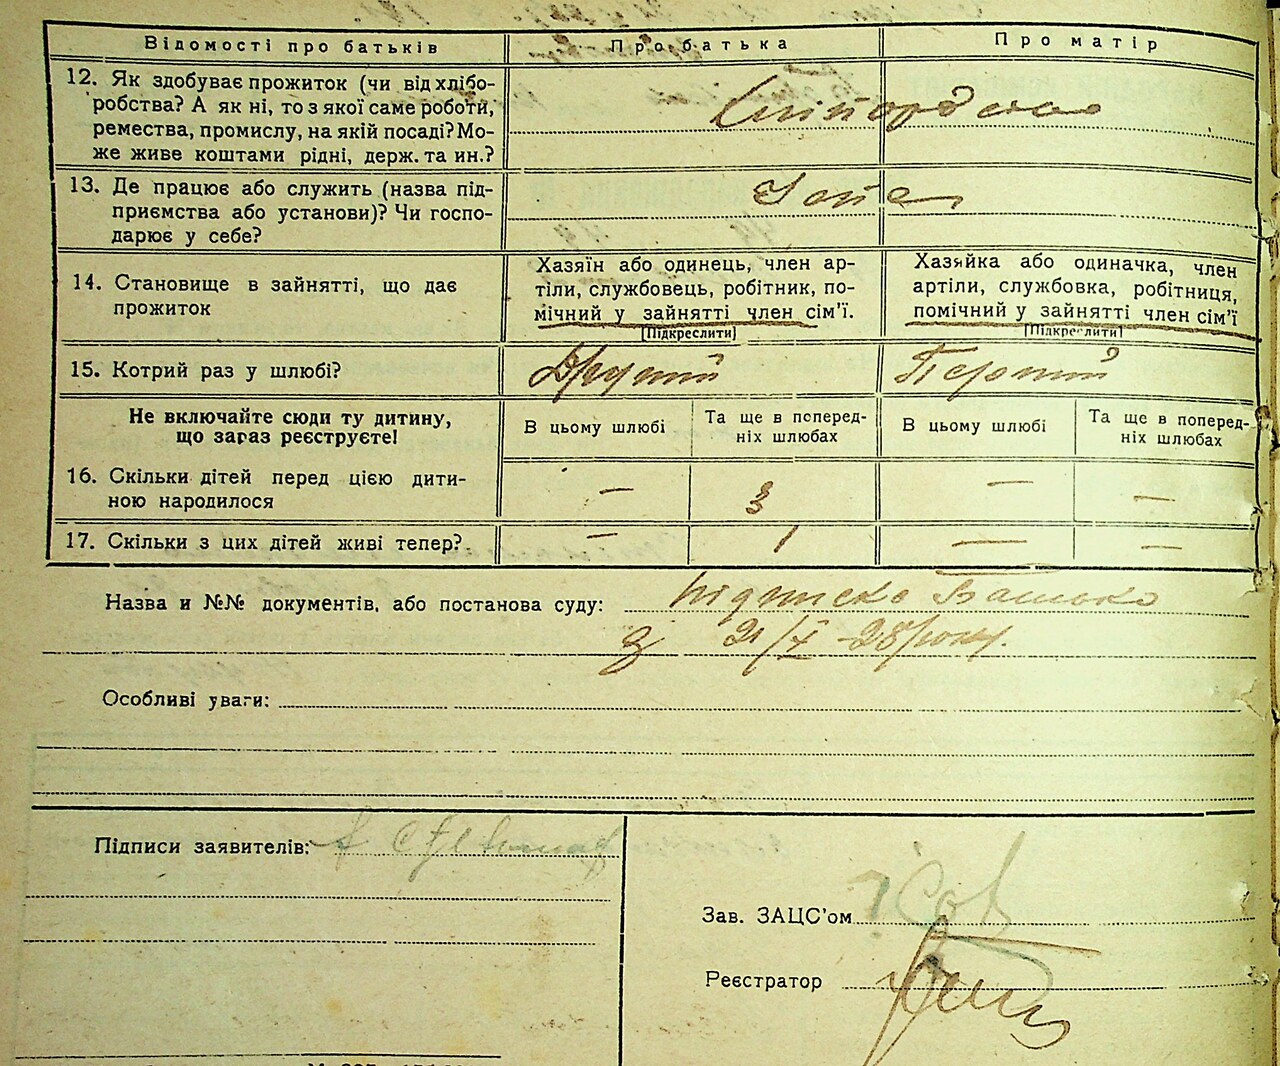 Відомості про батьків Про батька Про матір
12. Як здобуває прожиток (чи від хлібо-
робства? А як ні, то з якої саме роботи,
ремества, промислу, на якій посаді? Мо-
же живе коштами рідні, держ. та ин.?
13. Де працює або служить (назва під-
приємства або установи)? Чи госпо-
дарює у себе?
14. Становище в зайнятті, що дає
прожиток
Хазяїн або одинець, член ар-
тілі, службовець, робітник, по-
мічний у зайнятті член сім’ї.
[Підкреслити]
Хазяйка або одиначка, член
артіли, службовка, робітниця,
помічний у зайнятті член сім’ї
[Підкреслити]
15. Котрий раз у шлюбі? Другий Первий
Не включайте сюди ту дитину,
що зараз реєструєте!
В цьому шлюбі
Та ще в поперед-
ніх шлюбах
В цьому шлюбі
Та ще в поперед-
ніх шлюбах
16. Скільки дітей перед цією дити-
ною народилося
— 3 — —
17. Скільки з цих дітей живі тепер? — 1 — —
Назва и №№ документів, або постанова суду: підписка Батька
з 21/X -28 року.
Особливі уваги:
Підписи заявителів:
Зав. ЗАЦС’ом
Реєстратор